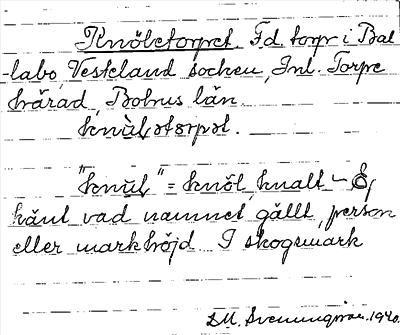 Knöletorpet. Fd. torp i Bal
-labo, Vesteland socken, Inl. Torpe
härad, Bohus län.
knùḷətårpət.
"knuḷ" = knöl, knalt – O,
känt vad namnet gällt, person
eller markhöjd. I skogsmark
1940.